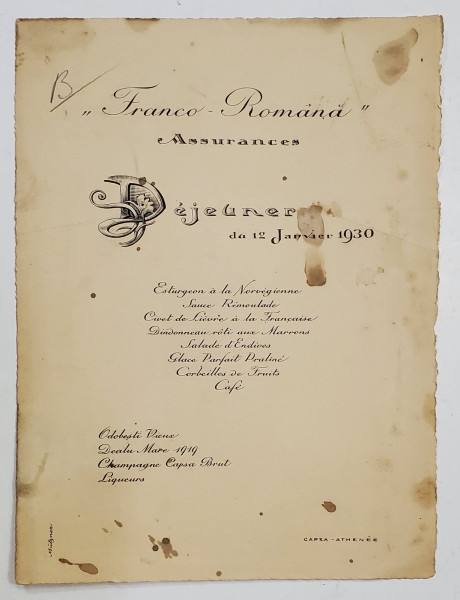 B
„ Franco - Română "
Assurances
Déjeuner
du 12 Janvier 1930
Esturgeon à la Norvégienne
Sauce Rémoulade
Civet de Lièvre à la Française
Dindonneau rôti aux Marrons
Salade d'Endives
Glace Parfait Praliné
Corbeilles de Fruits
Café
Odobești Vieux
Dealu-Mare 1919
Champagne Capsa Brut
Liqueurs
CAPSA - ATHENÉE